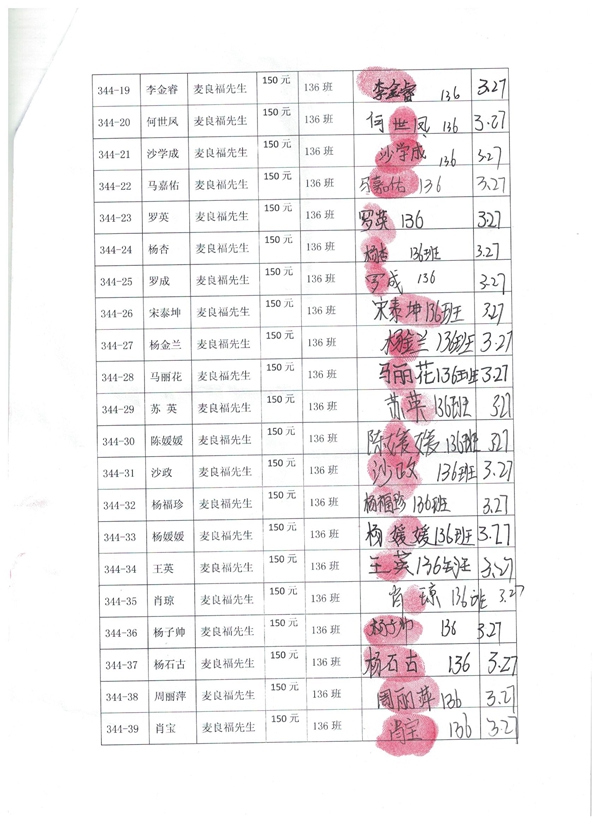 344-19 李金睿 麦良福先生 150元 136班 李金睿 136 3.27
344-20 何世凤 麦良福先生 150元 136班 何世凤 136 3.27
344-21 沙学成 麦良福先生 150元 136班 沙学成 136 3.27
344-22 马嘉佑 麦良福先生 150元 136班 马嘉佑 136 3.27
344-23 罗英 麦良福先生 150元 136班 罗英 136 3.27
344-24 杨杏 麦良福先生 150元 136班 杨杏 136班 3.27
344-25 罗成 麦良福先生 150元 136班 罗成 136 3.27
344-26 宋泰坤 麦良福先生 150元 136班 宋泰坤 136班 3.27
344-27 杨金兰 麦良福先生 150元 136班 杨金兰 136班 3.27
344-28 马丽花 麦良福先生 150元 136班 马丽花 136班 3.27
344-29 苏 英 麦良福先生 150元 136班 苏英 136班 327
344-30 陈媛媛 麦良福先生 150元 136班 陈媛媛 136班 327
344-31 沙政 麦良福先生 150元 136班 沙政 136班 3.27
344-32 杨福珍 麦良福先生 150元 136班 杨福珍 136班 3.27
344-33 杨媛媛 麦良福先生 150元 136班 杨媛媛 136班 3.27
344-34 王英 麦良福先生 150元 136班 王英 136班 3.27
344-35 肖琼 麦良福先生 150元 136班 肖琼 136班 3.27
344-36 杨子帅 麦良福先生 150元 136班 杨子帅 136 3.27
344-37 杨石古 麦良福先生 150元 136班 杨石古 136 3.27
344-38 周丽萍 麦良福先生 150元 136班 周丽萍 136 3.27
344-39 肖宝 麦良福先生 150元 136班 肖宝 136 3.27